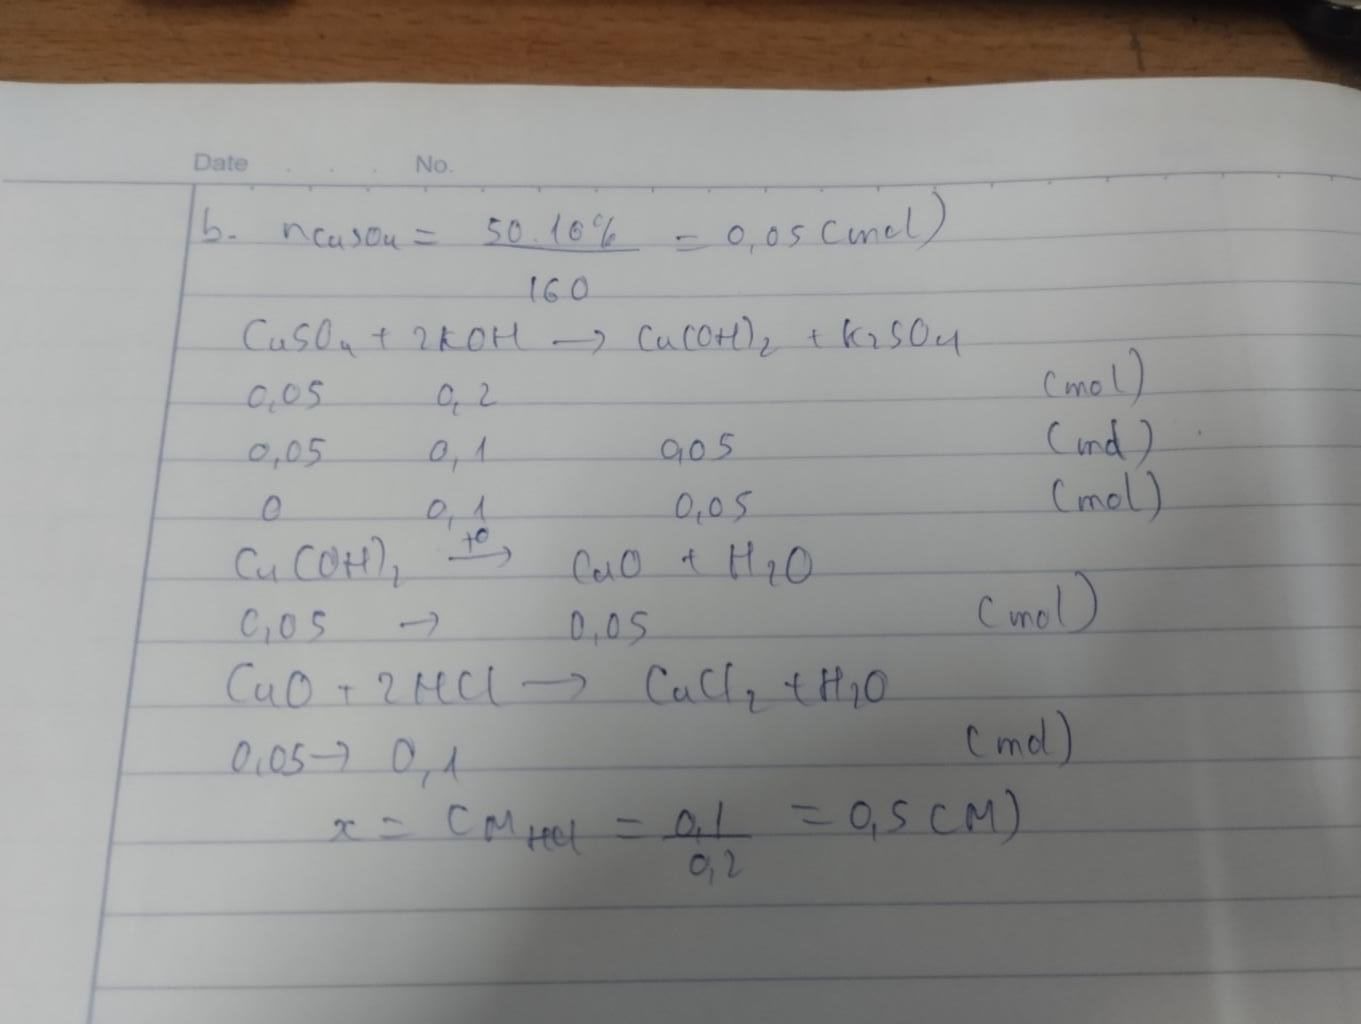 Date No.
b. nCuSO4 = 50.16% / 160 = 0,05 (mol)
CuSO4 + 2KOH → Cu(OH)2 + K2SO4
0,05 0,2 (mol)
0,05 0,1 0,05 (mol)
0 0,1 0,05 (mol)
Cu(OH)2 →to CuO + H2O
0,05 → 0,05 (mol)
CuO + 2HCl → CuCl2 + H2O
0,05 → 0,1 (mol)
x = CM HCl = 0,1 / 0,2 = 0,5 (M)